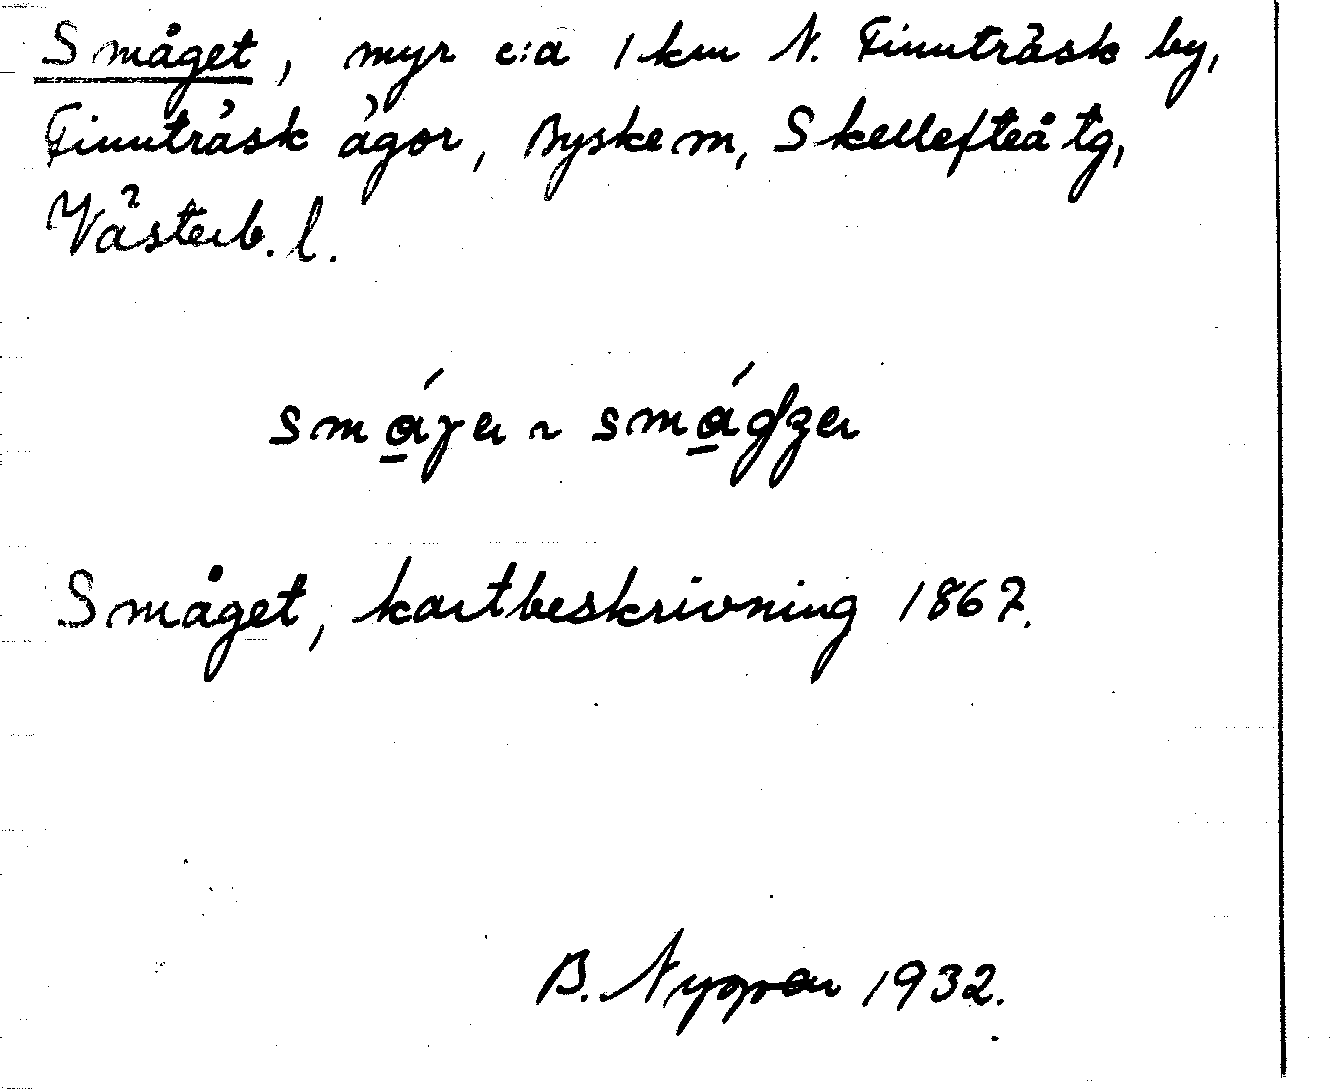 Småget, myr c:a 1 km N. Finnträsk by,
Finnträsk ägor, Byske sn, Skellefteå tg,
Västerb. l.
Småget, kartbeskrivning 1867.
B. Nygren 1932.